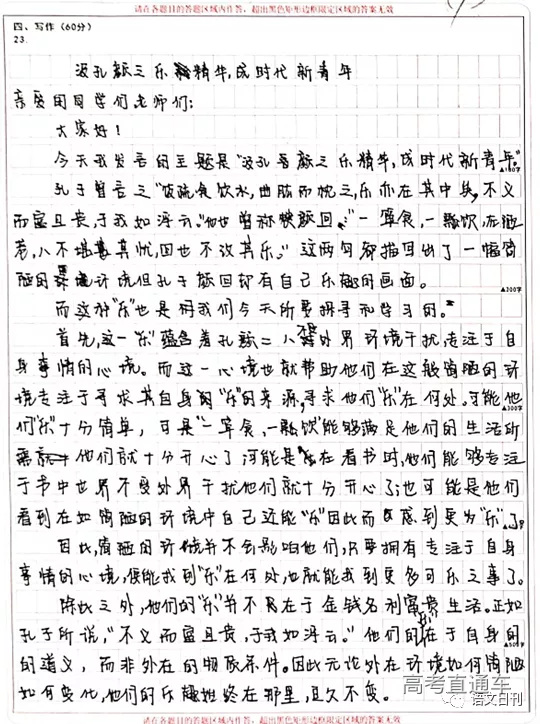 请在各题目的答题区域内作答，超出黑色矩形边框限定区域的答案无效
四、写作（60分）
23.
汲孔颜之乐精华，成时代新青年
亲爱的同学们老师们：
大家好！
今天我发言的主题是“汲孔颜之乐精华，成时代新青年。”
▲100字
孔子曾言之“饭疏食饮水，曲肱而枕之，乐亦在其中矣，不义
而富且贵，于我如浮云。”他也曾称赞颜回：“一箪食，一瓢饮，在陋
巷，人不堪其忧，回也不改其乐。”这两句都描写出了一幅简
陋的环境但孔子颜回却有自己乐趣的画面。
▲200字
而这种“乐”也是我们今天所要探寻和学习的。
首先，这一“乐”蕴含着孔颜二人不受外界环境干扰，专注于自
身事情的心境。而这一心境也就帮助他们在这般简陋的环
境专注于寻求其自身的“乐”的来源，寻求他们“乐”在何处。可能他
▲300字
们“乐”十分简单，可是“一箪食，一瓢饮”能够满足他们的生活所
他们就十分开心了；可能是在看书时，他们能够专注
于书中世界不受外界干扰他们就十分开心了；也可能是他们
看到在如简陋的环境中自己还能“乐”因此而感到更为“乐”了。
因此，简陋的环境并不会影响他们，只要拥有专注于自身
事情的心境，便能找到“乐”在何处，也就能找到更多可乐之事了。
除此之外，他们的“乐”并不在于金钱名利富贵生活。正如
孔子所说，“不义而富且贵，于我如浮云。”他们的“乐”在于自身的
的道义，而非外在的物质条件。因此无论外在环境如何简陋
如何变化，他们的乐趣始终在那里，亘久不变。
高考直通车
语文日刊
请在各题目的答题区域内作答，超出黑色矩形边框限定区域的答案无效